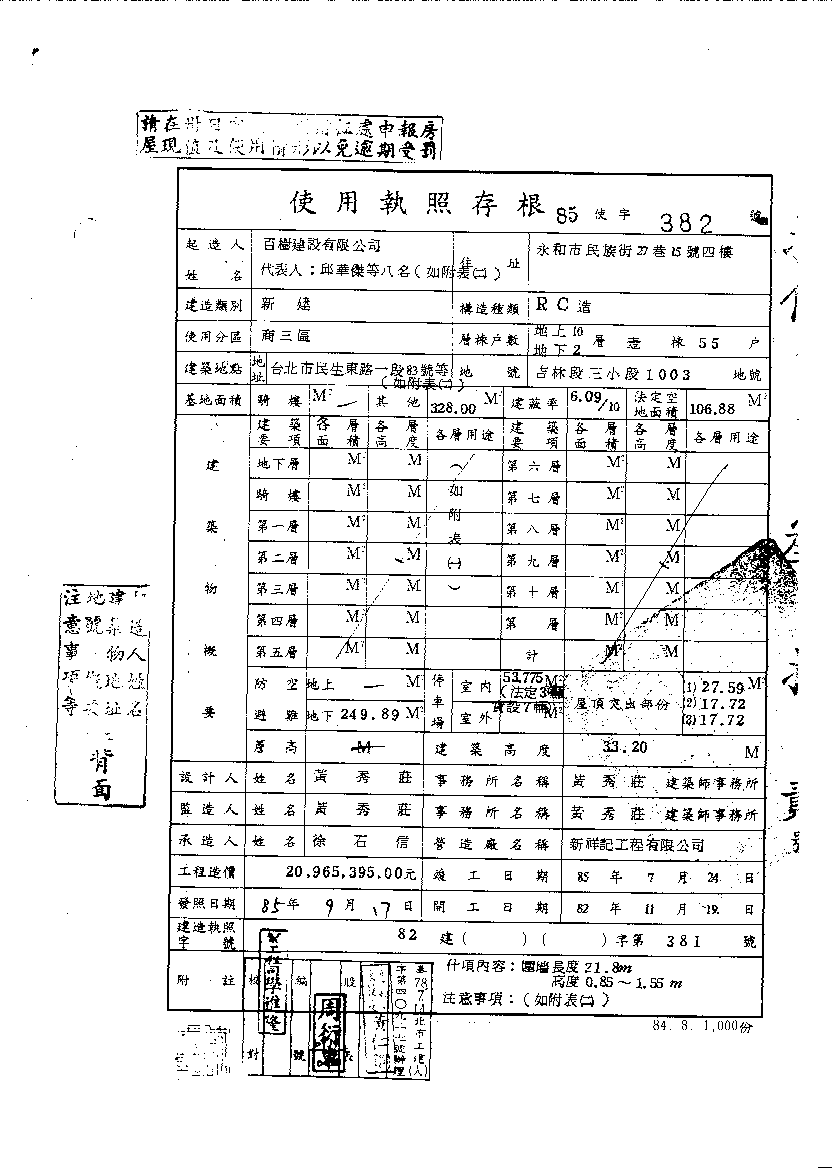 請在 處申報房
屋現值及使用情形以免逾期受罰
使用執照存根 85 使字 382 號
起造人姓名 百樹建設有限公司 代表人：邱華傑等八名(如附表㈡) 住址 永和市民族街27巷15號四樓
建造類別 新建 構造種類 RC造
使用分區 商三區 層棟戶數 地上10 地下2 層 壹 棟 55 戶
建築地點 地址 台北市民生東路一段83號等(如附表㈡) 地號 吉林段三小段1003 地號
基地面積 騎樓 M² — 其他 328.00 M² 建蔽率 6.09/10 法定空地面積 106.88 M²
建築物概要 建築要項 各層面積 各層高度 各層用途 建築要項 各層面積 各層高度 各層用途
地下層 M² M (如附表㈠) 第六層 M² M
騎樓 M² M 第七層 M² M
第一層 M² M 第八層 M² M
第二層 M² M 第九層 M² M
第三層 M² M 第十層 M² M
第四層 M² M 第 層 M² M
第五層 M² M 計 M² M
防空避難 地上 — M 停車場 室內 53.775 M² 屋頂突出部份 (1)27.59 M²
地下 249.89 M² 室外 M² (2)17.72
(3)17.72
層高 M 建築高度 33.20 M
設計人 姓名 黃秀莊 事務所名稱 黃秀莊 建築師事務所
監造人 姓名 黃秀莊 事務所名稱 黃秀莊 建築師事務所
承造人 姓名 徐石信 營造廠名稱 新祥記工程有限公司
工程造價 20,965,395.00元 竣工日期 85年7月24日
發照日期 85年9月17日 開工日期 82年11月19日
建造執照字號 82 建( )( )字第 381 號
附註 什項內容：圍牆長度21.8m
高度 0.85～1.55m
注意事項：(如附表㈡)
校對 編號 股長
84.8.1,000份
注意事項等
背面